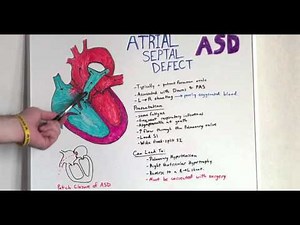 ATRIAL
SEPTAL
DEFECT
ASD
- Typically a patent foramen ovale
- Associated with Downs + FAS
- L→R shunting → poorly oxygenated blood
Presentation:
- some fatigue
- frequent respiratory infections
- asymptomatic at youth
- ↑ flow through the Pulmonary valve
- Loud S1
- Wide fixed split S2
Can Lead To:
- Pulmonary Hypertension
- Right Ventricular Hypertrophy
- Reverse to a R→L shunt
- Must be corrected with surgery
Patch Closure of ASD